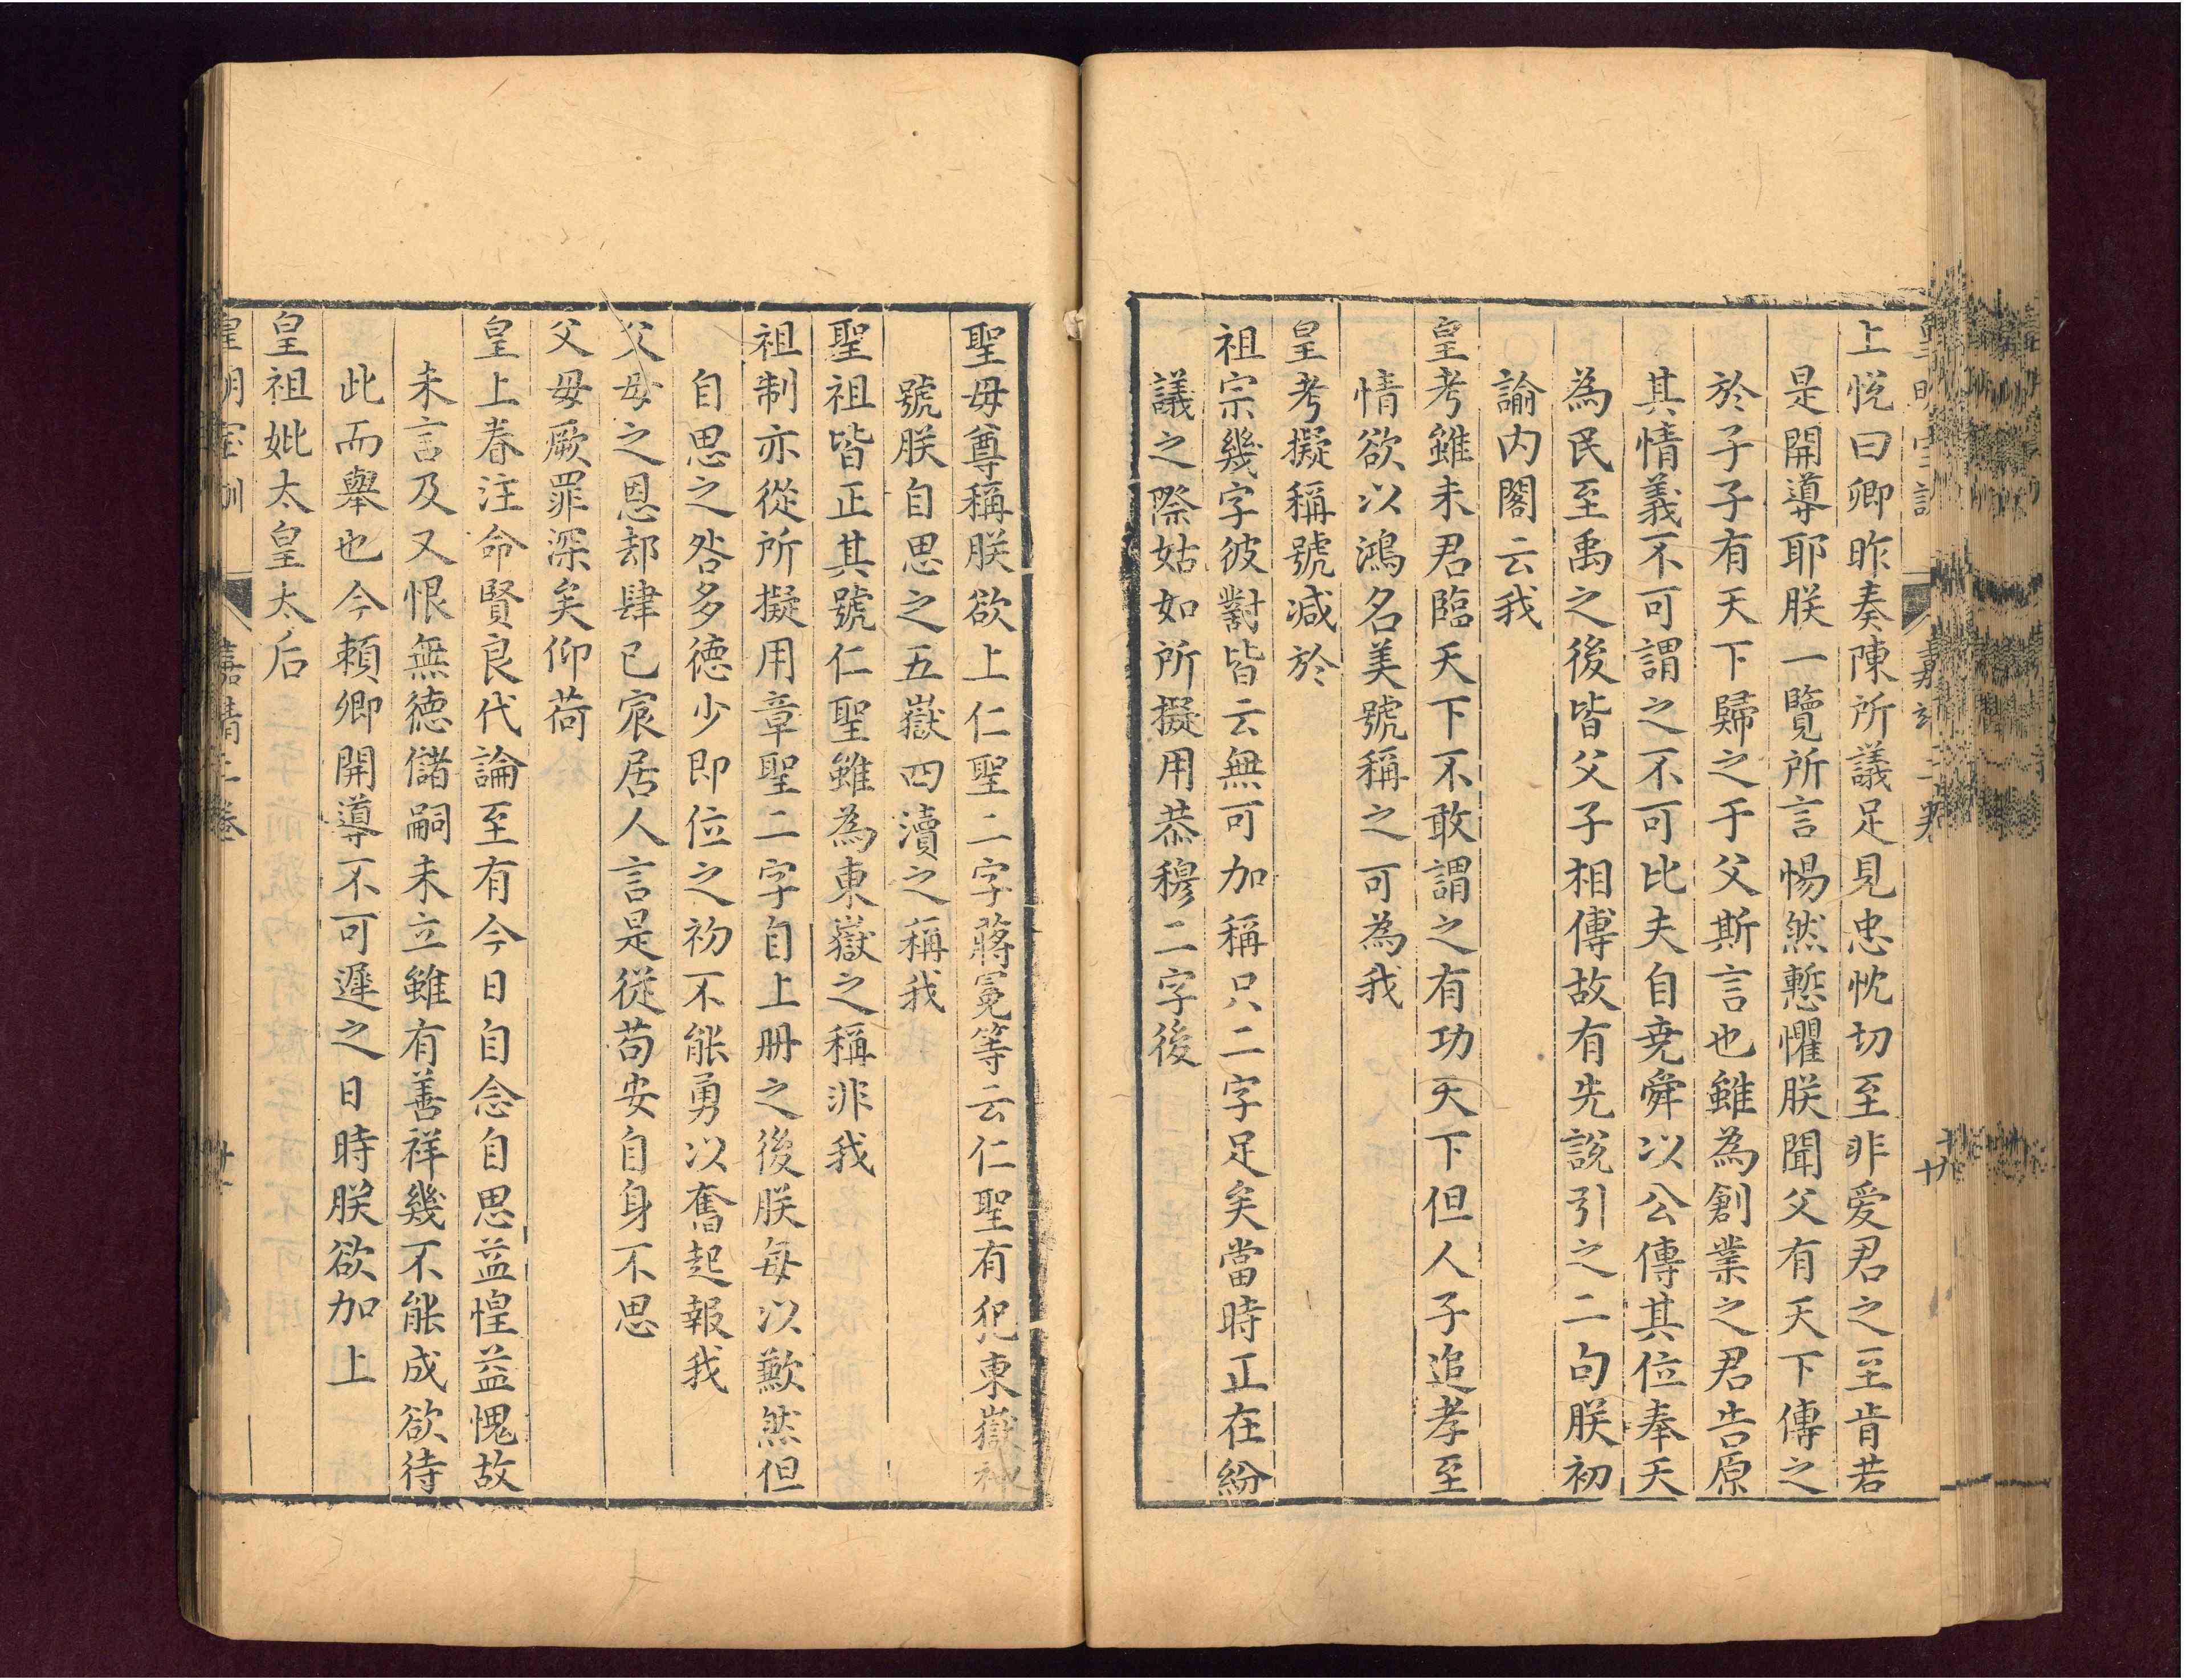 上悅曰卿昨奏陳所議足見忠忱切至非爱君之至肯若
是開導耶朕一覽所言惕然慙懼朕聞父有天下傳之
於子子有天下歸之于父斯言也雖為創業之君告原
其情義不可謂之不可比夫自尭舜以公傳其位奉天
為民至禹之後皆父子相傳故有先說引之二句朕初
諭内閣云我
皇考雖未君臨天下不敢謂之有功天下但人子追孝至
情欲以鴻名美號稱之可為我
皇考擬稱號減於
祖宗幾字彼對皆云無可加稱只二字足矣當時正在紛
議之際姑如所擬用恭穆二字後
聖母尊稱朕欲上仁聖二字蔣冕等云仁聖有犯東嶽神
號朕自思之五嶽四瀆之稱我
聖祖皆正其號仁聖雖為東嶽之稱非我
祖制亦從所擬用章聖二字自上冊之後朕每以歉然但
自思之咎多德少即位之初不能勇以奮起報我
父母之恩却肆已宸居人言是從苟安自身不思
父母厥罪深矣仰荷
皇上眷注命賢良代論至有今日自念自思益惶益愧故
未言及又恨無德儲嗣未立雖有善祥幾不能成欲待
此而舉也今頼卿開導不可遲之日時朕欲加上
皇祖妣太皇太后
皇明寶訓
嘉靖二卷